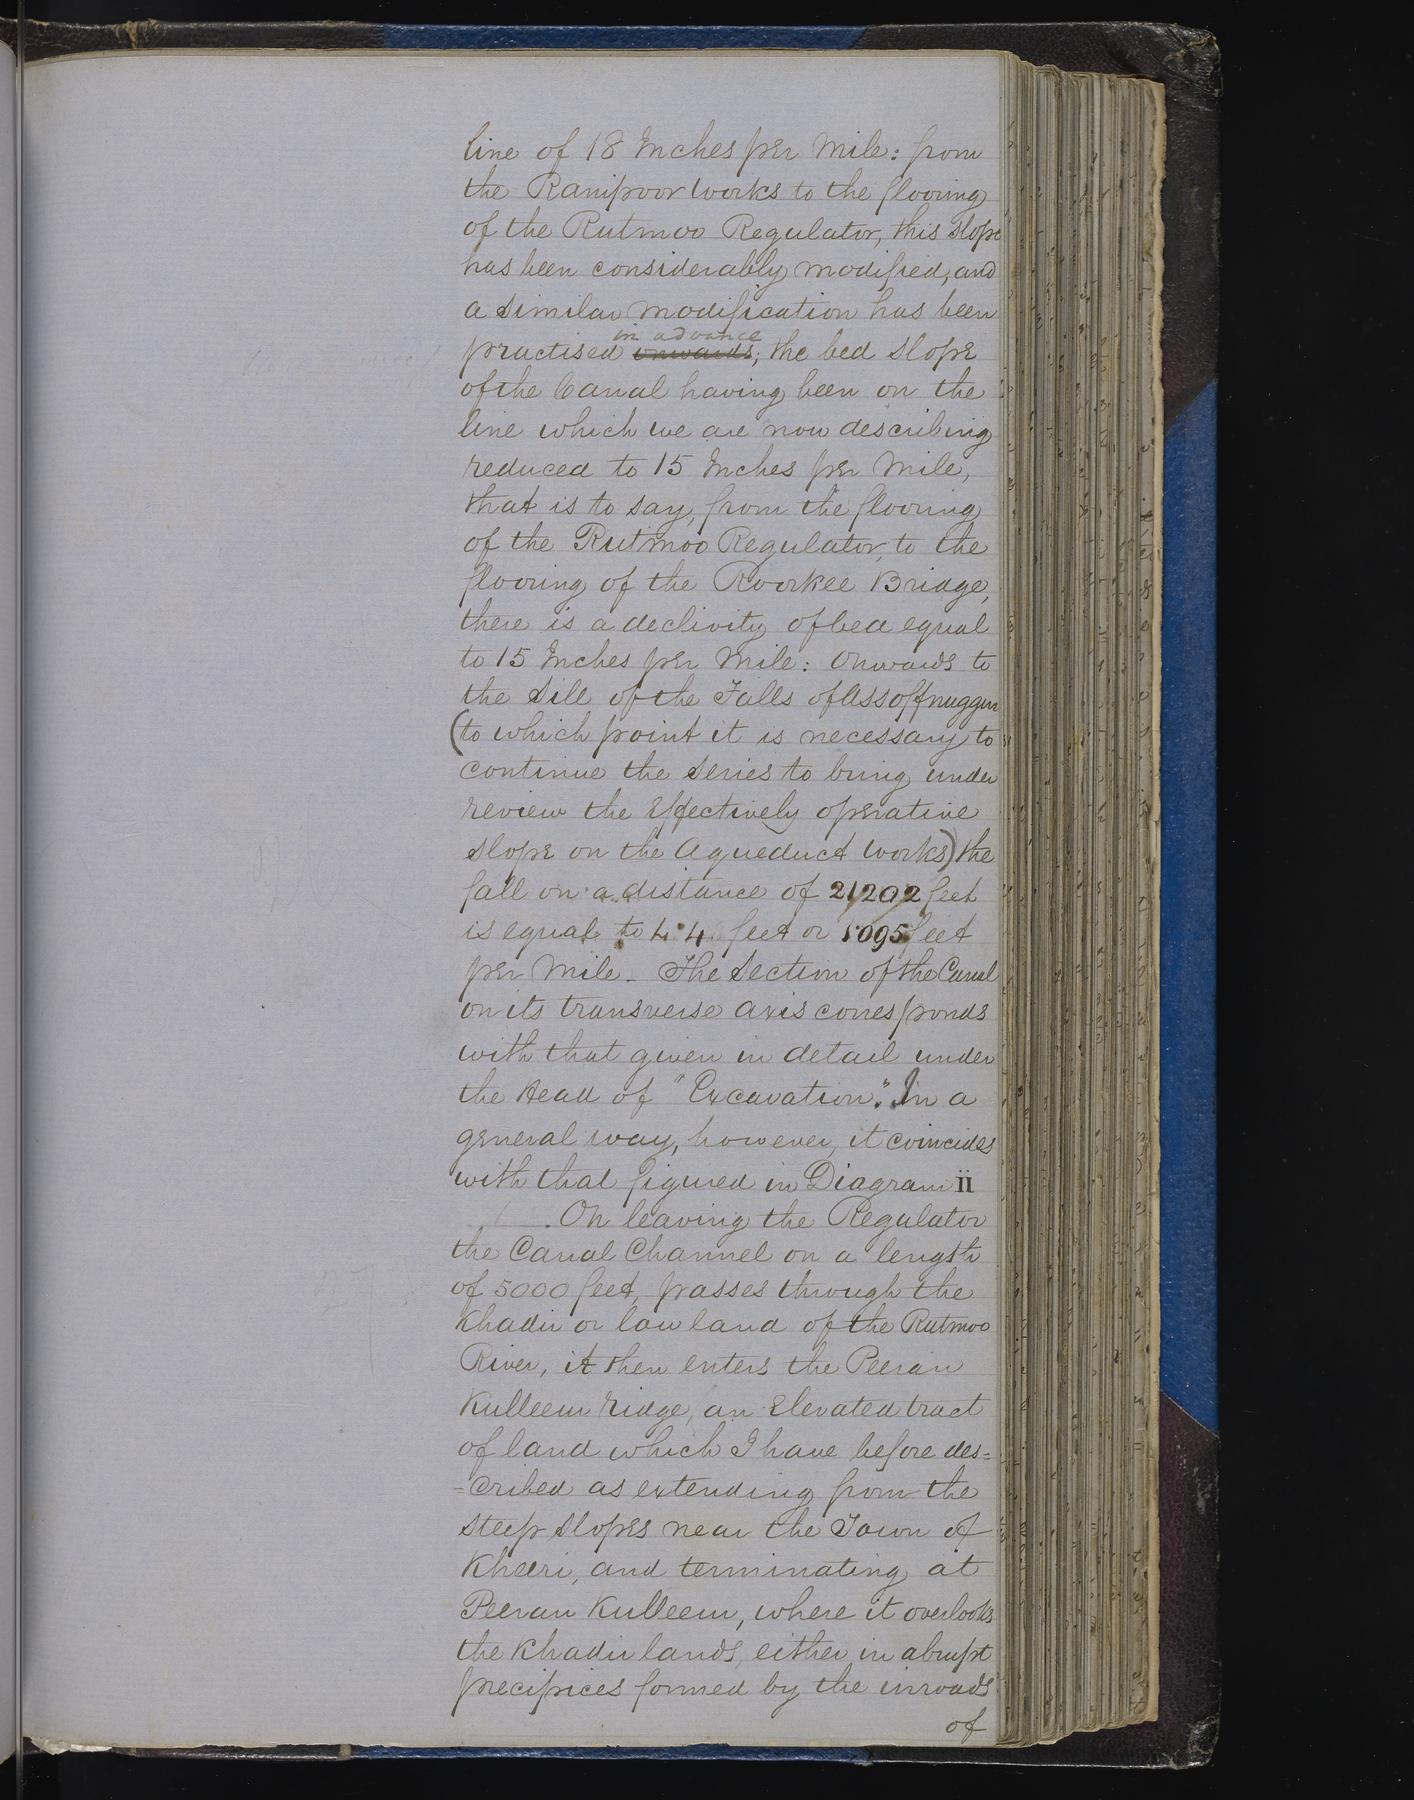 line of 18 Inches per Mile: from
the Ranipoor Works to the flooring
of the Rutmoo Regulator, this slope
has been considerably modified, and
a similar modification has been
in advance
practised onwards; the bed slope
of the Canal having been on the
line which we are now describing
reduced to 15 Inches per Mile,
that is to say, from the flooring
of the Rutmoo Regulator, to the
flooring of the Roorkee Bridge,
there is a declivity of bed equal
to 15 Inches per Mile: Onwards to
the Sill of the Falls of Assoffnuggur
(to which point it is necessary to
continue the series to bring under
review the effectively operative
slope on the Aqueduct Works) the
fall on a distance of 21202 feet
is equal to 4.4 feet or 1.095 feet
per Mile_ The Section of the Canal
on its transverse axis corresponds
with that given in detail under
the Head of "Excavation." In a
general way, however, it coincides
with that figured in Diagram ii
On leaving the Regulator
the Canal Channel on a length
of 5000 feet, passes through the
Khadir or low land of the Rutmoo
River, it then enters the Peeran
Kulleeur ridge, an elevated tract
of land which I have before des=
=cribed as extending from the
steep slopes near the Town of
Kheeri, and terminating at
Peeran Kulleeur, where it overlooks
the Khadir lands, either in abrupt
precipices formed by the inroads
of